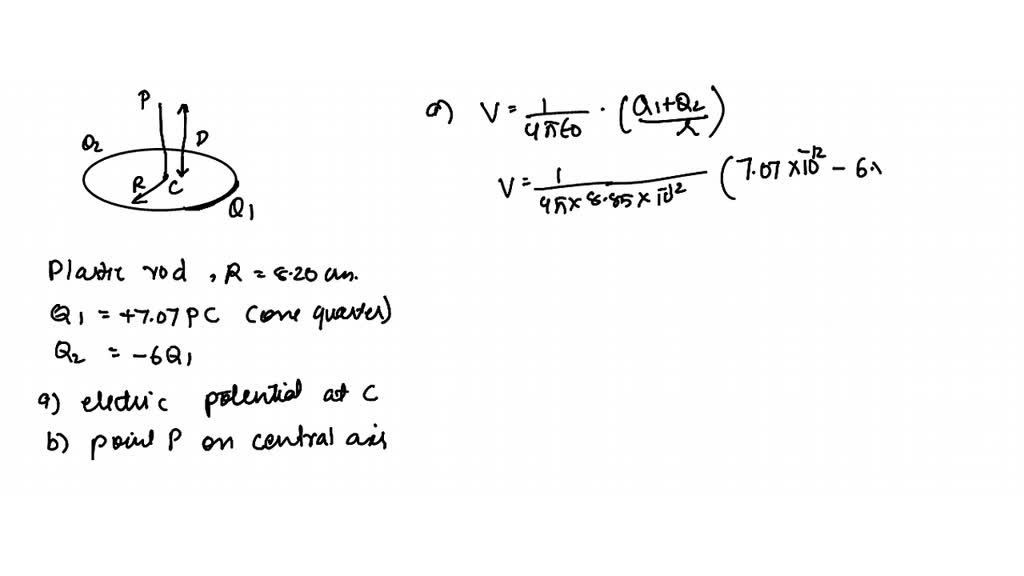 P
D
Q2
R C
Q1
Plastic rod , R = 8.20 cm.
Q1 = +7.07 PC (one quarter)
Q2 = -6Q1
a) electric potential at C
b) point P on central axis
a) V = 1/4π€0 · (Q1+Q2/r)
V = 1/4π × 8.85 × 10^-12 (7.07 × 10^-12 - 6.